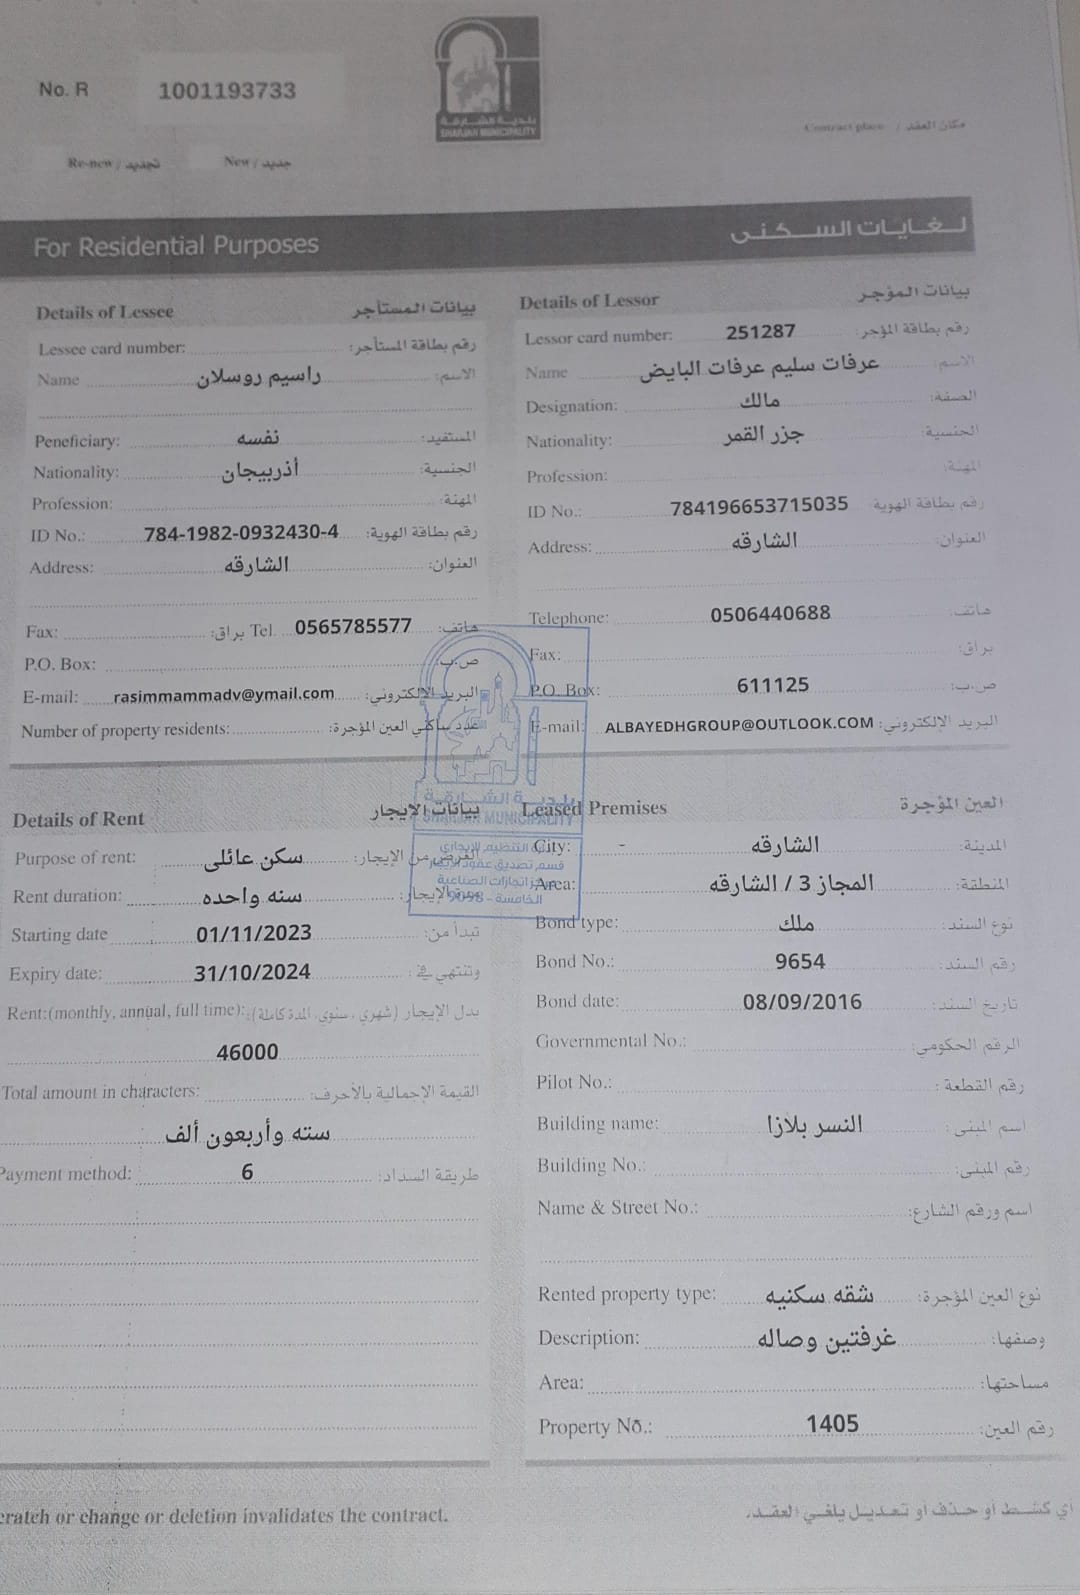 No. R 1001193733
بلدية الشارقة
SHARJAH MUNICIPALITY
Contract place / مكان العقد
Re-new / تجديد New / جديد
For Residential Purposes لغايات السكنى
Details of Lessee بيانات المستأجر
Lessee card number: رقم بطاقة المستأجر:
Name راسيم روسلان الاسم:
Peneficiary: نفسه المستفيد:
Nationality: أذربيجان الجنسية:
Profession: المهنة:
ID No.: 784-1982-0932430-4 رقم بطاقة الهوية:
Address: الشارقه العنوان:
Fax: براق: Tel. 0565785577 هاتف:
P.O. Box: ص.ب:
E-mail: rasimmammadv@ymail.com البريد الإلكتروني:
Number of property residents: عدد ساكني العين المؤجرة:
Details of Lessor بيانات المؤجر
Lessor card number: 251287 رقم بطاقة المؤجر:
Name عرفات سليم عرفات البايض الاسم:
Designation: مالك الصفة:
Nationality: جزر القمر الجنسية:
Profession: المهنة:
ID No.: 784196653715035 رقم بطاقة الهوية
Address: الشارقه العنوان:
Telephone: 0506440688 هاتف:
Fax: براق:
P.O. Box: 611125 ص.ب:
E-mail: ALBAYEDHGROUP@OUTLOOK.COM البريد الإلكتروني:
بلدية الشارقة
SHARJAH MUNICIPALITY
التنظيم الإيجاري
قسم تصديق عقود الإيجار
انجازات الصناعية
الخامسة - 9098
Details of Rent بيانات الإيجار
Purpose of rent: سكن عائلى الغرض من الإيجار:
Rent duration: سنه واحده مدة الإيجار:
Starting date 01/11/2023 تبدأ من:
Expiry date: 31/10/2024 وتنتهي في:
Rent:(monthly, annual, full time): بدل الإيجار (شهري، سنوي، المدة كاملة):
46000
Total amount in characters: القيمة الإجمالية بالأحرف:
سته وأربعون ألف
Payment method: 6 طريقة السداد:
Leased Premises العين المؤجرة
City: - الشارقه المدينة:
Area: المجاز 3 / الشارقه المنطقة:
Bond type: ملك نوع السند:
Bond No.: 9654 رقم السند:
Bond date: 08/09/2016 تاريخ السند:
Governmental No.: الرقم الحكومي:
Pilot No.: رقم القطعة:
Building name: النسر بلازا اسم المبنى:
Building No.: رقم المبنى:
Name & Street No.: اسم ورقم الشارع:
Rented property type: شقه سكنيه نوع العين المؤجرة:
Description: غرفتين وصاله وصفها:
Area: مساحتها:
Property No.: 1405 رقم العين:
cratch or change or deletion invalidates the contract. أي كشط أو حذف أو تعديل يلغي العقد.